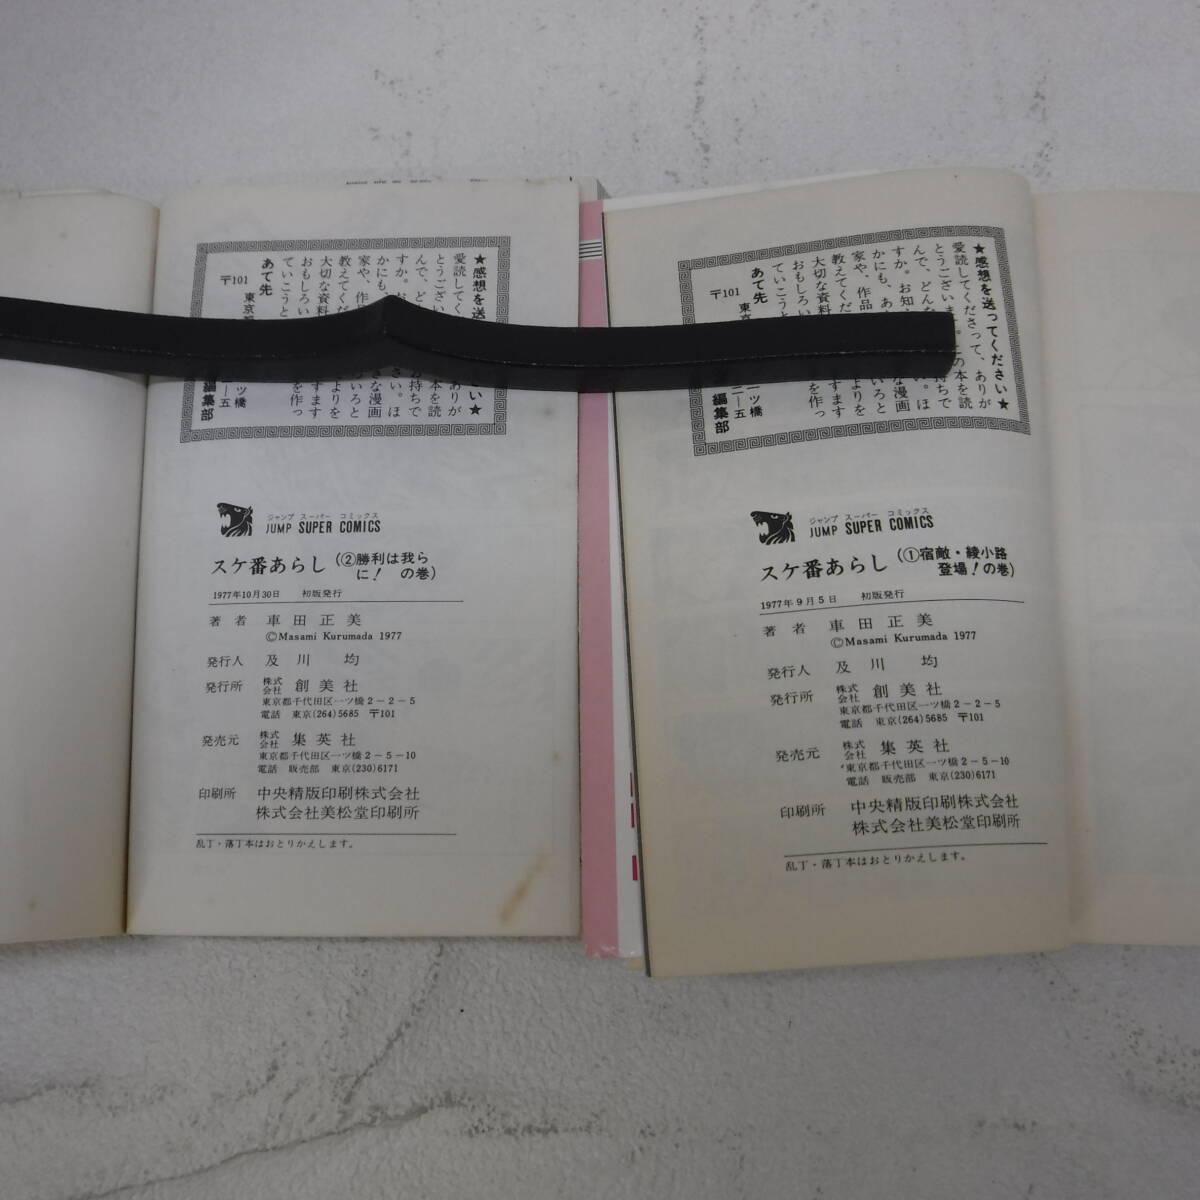 ★感想を送
さい★
愛読してく
ありが
とうござい
本を読
んで、ど
お持ちで
すか。お
かにも、
さい。ほ
家や、作品
きな漫画
教えてくだ
よりを
大切な資料
ますます
おもしろい
いろと
ていこうと
を作っ
あて先
〒101
東京都
ツ橋
二―五
編集部
ジャンプ スーパー コミックス
JUMP SUPER COMICS
スケ番あらし(②勝利は我らに! の巻)
1977年10月30日 初版発行
著者 車田正美
©Masami Kurumada 1977
発行人 及川 均
発行所 株式会社 創美社
東京都千代田区一ツ橋2-2-5
電話 東京(264)5685 〒101
発売元 株式会社 集英社
東京都千代田区一ツ橋2-5-10
電話 販売部 東京(230)6171
印刷所 中央精版印刷株式会社
株式会社美松堂印刷所
乱丁・落丁本はおとりかえします。
★感想を送ってください★
愛読してくださって、ありが
とうございます。この本を読
んで、どんな
持ちで
すか。お知
かにも、あ
い。ほ
家や、作品
な漫画
教えてくだ
よりを
大切な資料
いろと
おもしろい
ますます
ていこうと
を作っ
あて先
〒101
東京
一ツ橋
二―五
編集部
ジャンプ スーパー コミックス
JUMP SUPER COMICS
スケ番あらし(①宿敵・綾小路登場!の巻)
1977年9月5日 初版発行
著者 車田正美
©Masami Kurumada 1977
発行人 及川 均
発行所 株式会社 創美社
東京都千代田区一ツ橋2-2-5
電話 東京(264)5685 〒101
発売元 株式会社 集英社
東京都千代田区一ツ橋2-5-10
電話 販売部 東京(230)6171
印刷所 中央精版印刷株式会社
株式会社美松堂印刷所
乱丁・落丁本はおとりかえします。